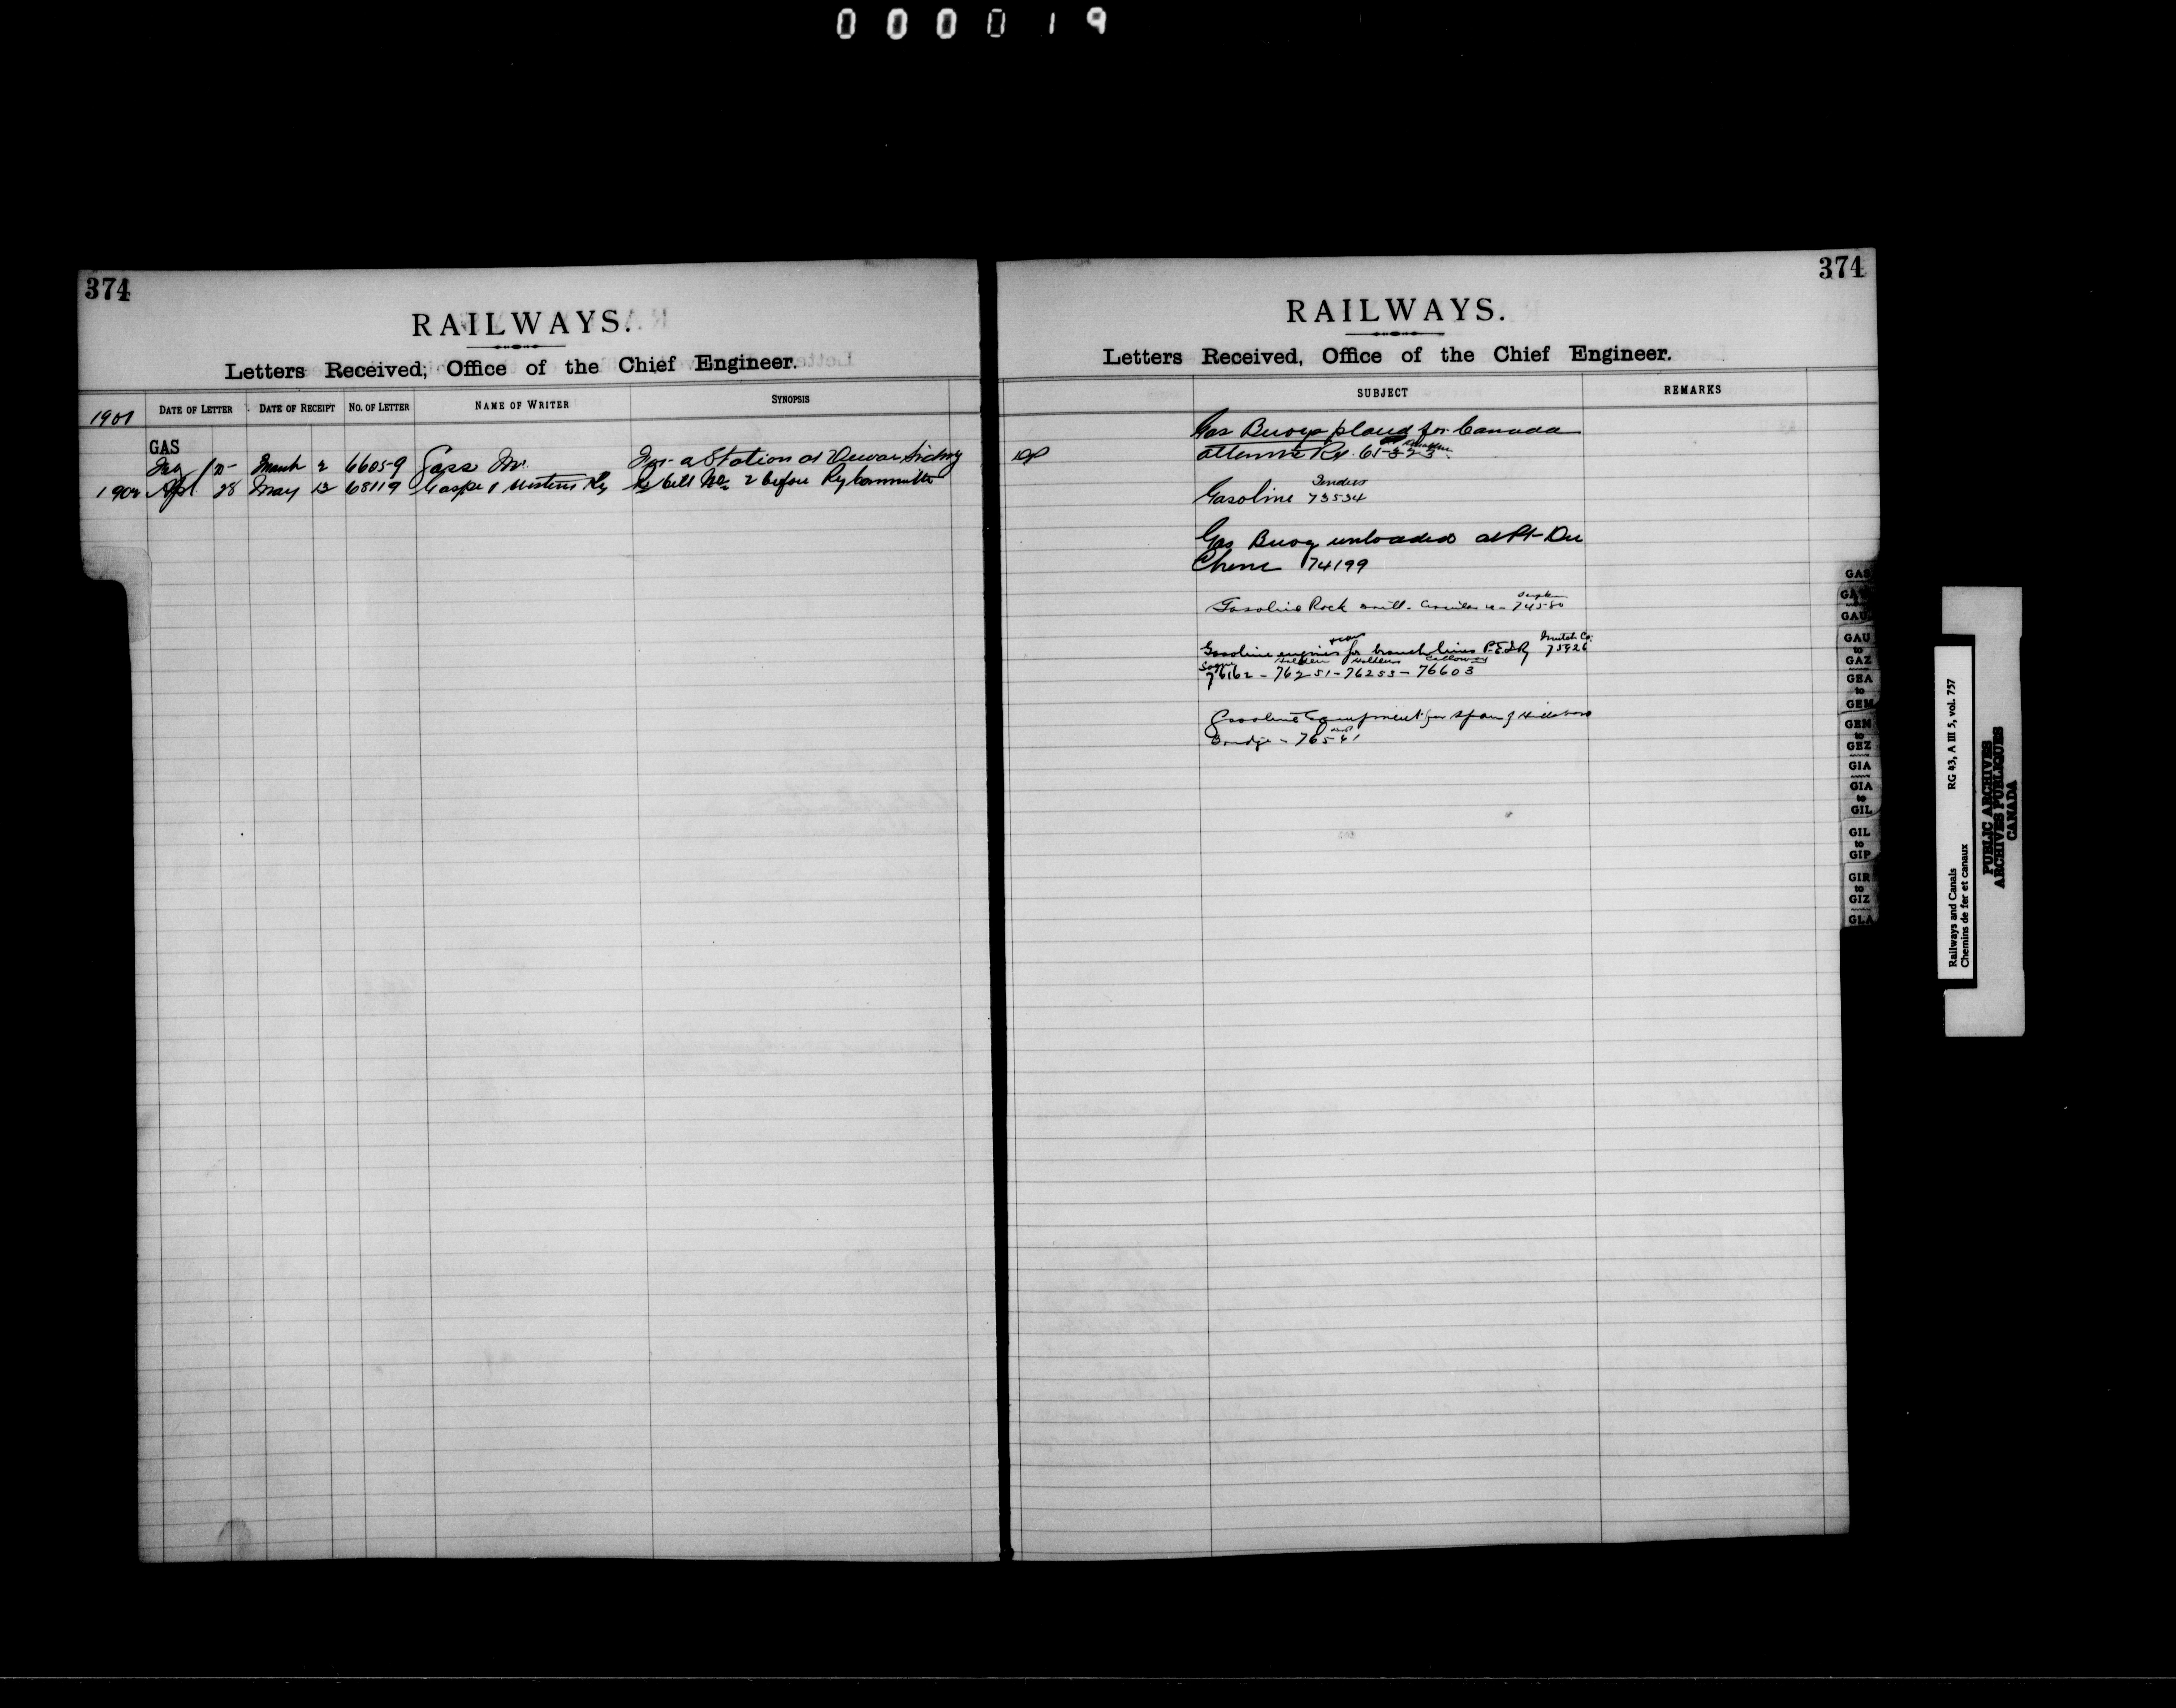 000019
374
RAILWAYS.
Letters Received, Office of the Chief Engineer.
1901
DATE OF LETTER
DATE OF RECEIPT
NO. OF LETTER
NAME OF WRITER
SYNOPSIS
GAS
March 2 66059 Gass For a Station at Dewar Siding
1902 Apl 28 May 12 68119 Gaspe & Western Ry bill No 2 before Ry Committee
374
RAILWAYS.
Letters Received, Office of the Chief Engineer.
SUBJECT
REMARKS
Gas Buoys placed for Canada
Atlantic Ry.
Tenders
Gasoline 73534
Gas Buoy unloaded at Pt Du
Chene 74199
Gasoline Rock drill. 74580
Gasoline engines for branch lines P.E.I.Ry 75926
76162 - 76251 - 76253 - 76603
Gasoline Equipment for span of Hillsboro
Bridge - 76561
GAS
GAU
GAU
to
GAZ
GEA
to
GEM
GEN
to
GEZ
GIA
GIA
to
GIL
GIL
to
GIP
GIR
to
GIZ
GLA
Railways and Canals
RG 43, A III 5, vol. 757
Chemins de fer et canaux
PUBLIC ARCHIVES
ARCHIVES PUBLIQUES
CANADA